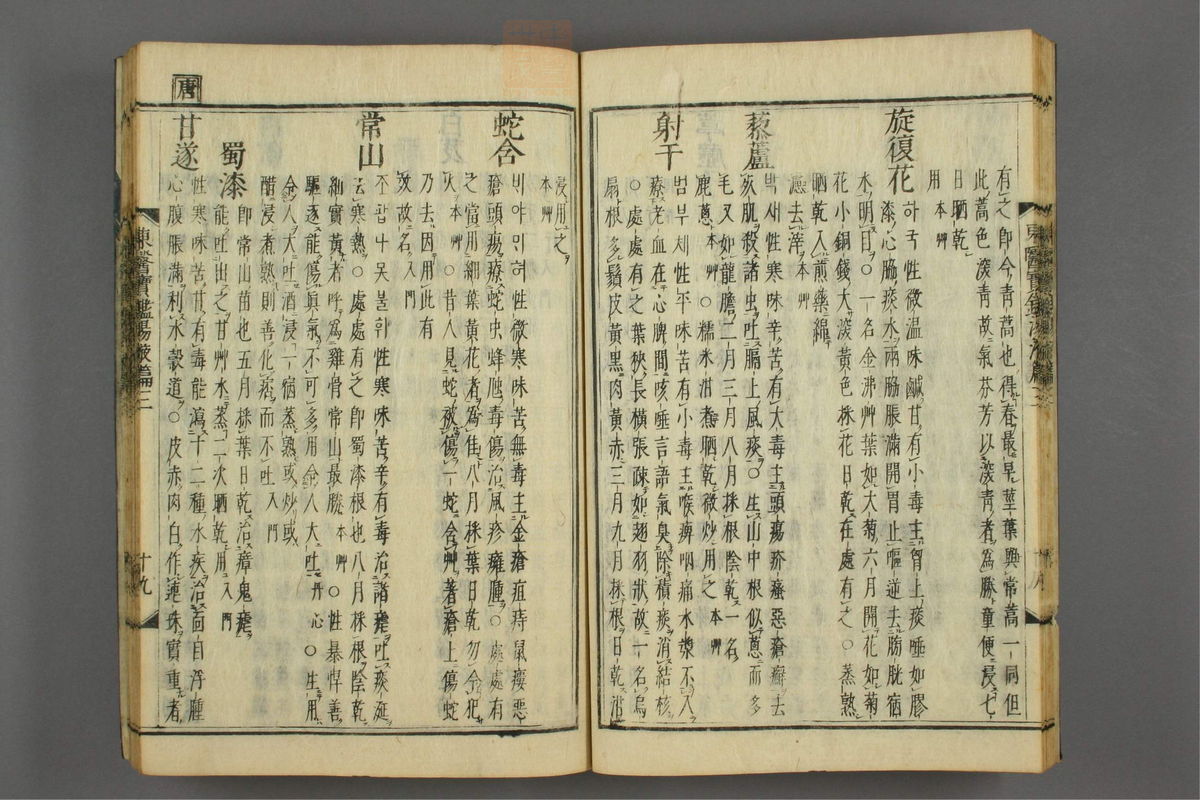 有之卽今靑蒿也得春最早莖葉與常蒿一同但
此蒿色深靑故氣芬芳以深靑者爲勝童便浸七
日晒乾
用 本艸
旋復花
하국性微溫味鹹甘有小毒主胃上痰唾如膠
漆心脇痰水兩脇脹滿開胃止嘔逆去膀胱宿
水明目○一名金沸艸葉如大菊六月開花如菊
花小銅錢大深黃色採花日乾在處有之○蒸熟
晒乾入煎藥綿
濾去滓 本艸
藜蘆
박새性寒味辛苦有大毒主頭瘍疥瘙惡瘡癬去
死肌殺諸虫吐膈上風痰○生山中根似蔥而多
毛又如龍膽二月三月八月採根陰乾一名
鹿蔥 本艸 ○糯米泔煮晒乾微炒用之 本艸
射干
범부채性平味苦有小毒主喉痺咽痛水漿不入
療老血在心脾間咳唾言語氣臭除積痰消結核
○處處有之葉狹長橫張疎如翅羽狀故一名烏
扇根多鬚皮黃黑肉黃赤三月九月採根日乾泔
浸用之
本艸
蛇含
ᄇᆡ야미혀性微寒味苦無毒主金瘡疽痔鼠瘻惡
瘡頭瘍療蛇虫蜂虺毒傷治風疹癰腫○處處有
之當用細葉黃花者爲佳八月採葉日乾勿令犯
火 本艸 ○昔人見蛇被傷一蛇含艸著瘡上傷蛇
乃去因用此有
效故名 入門
常山
조팝나못불휘性寒味苦辛有毒治諸瘧吐痰涎
去寒熱○處處有之卽蜀漆根也八月採根陰乾
細實黃者呼爲雞骨常山最勝 本艸 ○性暴悍善
驅逐能傷眞氣不可多用令人大吐 丹心 ○生用
令人大吐酒浸一宿蒸熟或炒或
醋浸煮熟則善化瘀而不吐 入門
蜀漆
卽常山苗也五月採葉日乾治瘴鬼瘧
能吐出之甘艸水蒸二次晒乾用 入門
唐
甘遂
性寒味苦甘有毒能瀉十二種水疾治面目浮腫
心腹脹滿利水穀道○皮赤肉白作連珠實重者
東醫寶鑑湯液篇三
十九